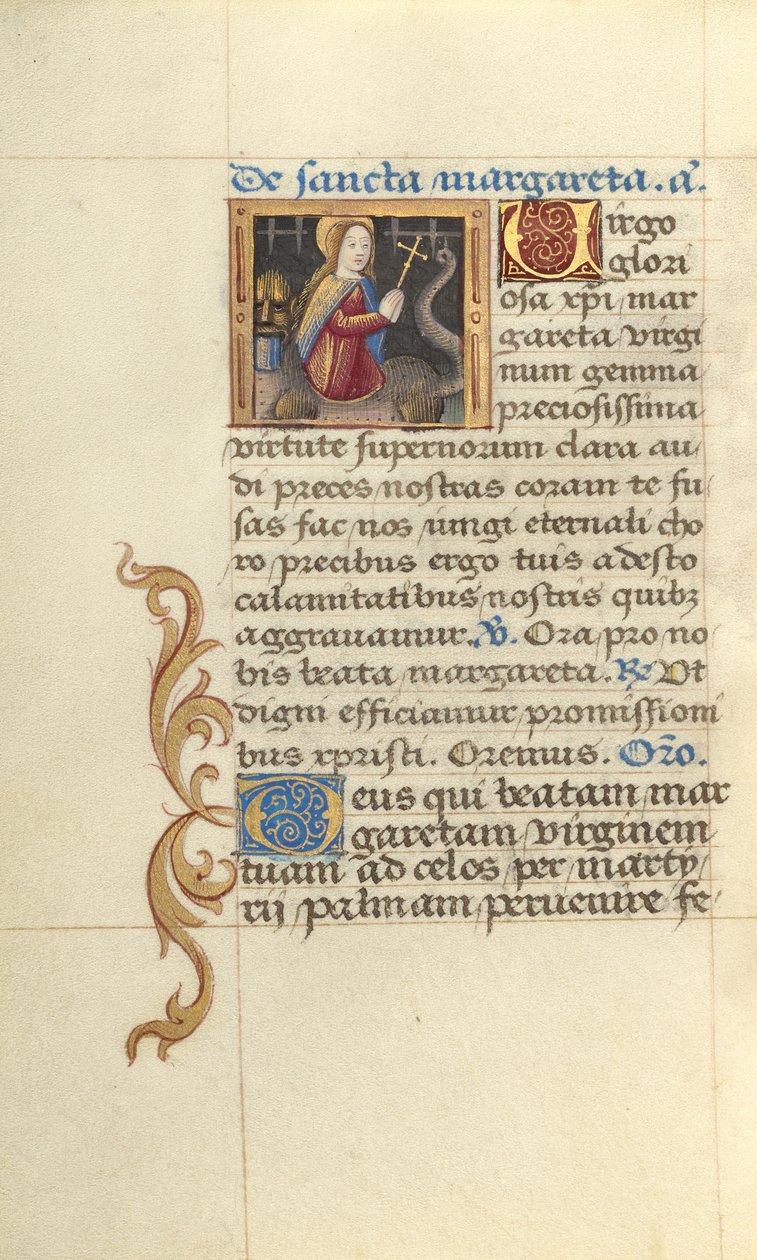 De sancta margareta. a͂.
Uirgo
glori
osa xp̃i mar
gareta virgi
num gemma
preciosissima
virtute supernorum clara au
di preces nostras coram te fu
sas fac nos iungi eternali cho
ro precibus ergo tuis adesto
calamitatibus nostris quibꝫ
aggrauamur. ꝟ. Ora pro no
bis beata margareta. ℞ Vt
digni efficiamur promissioni
bus xpristi. Oremus. Or̃o.
Deus qui beatam mar
garetam virginem
tuam ad celos per marty
rij palmam peruenire fe